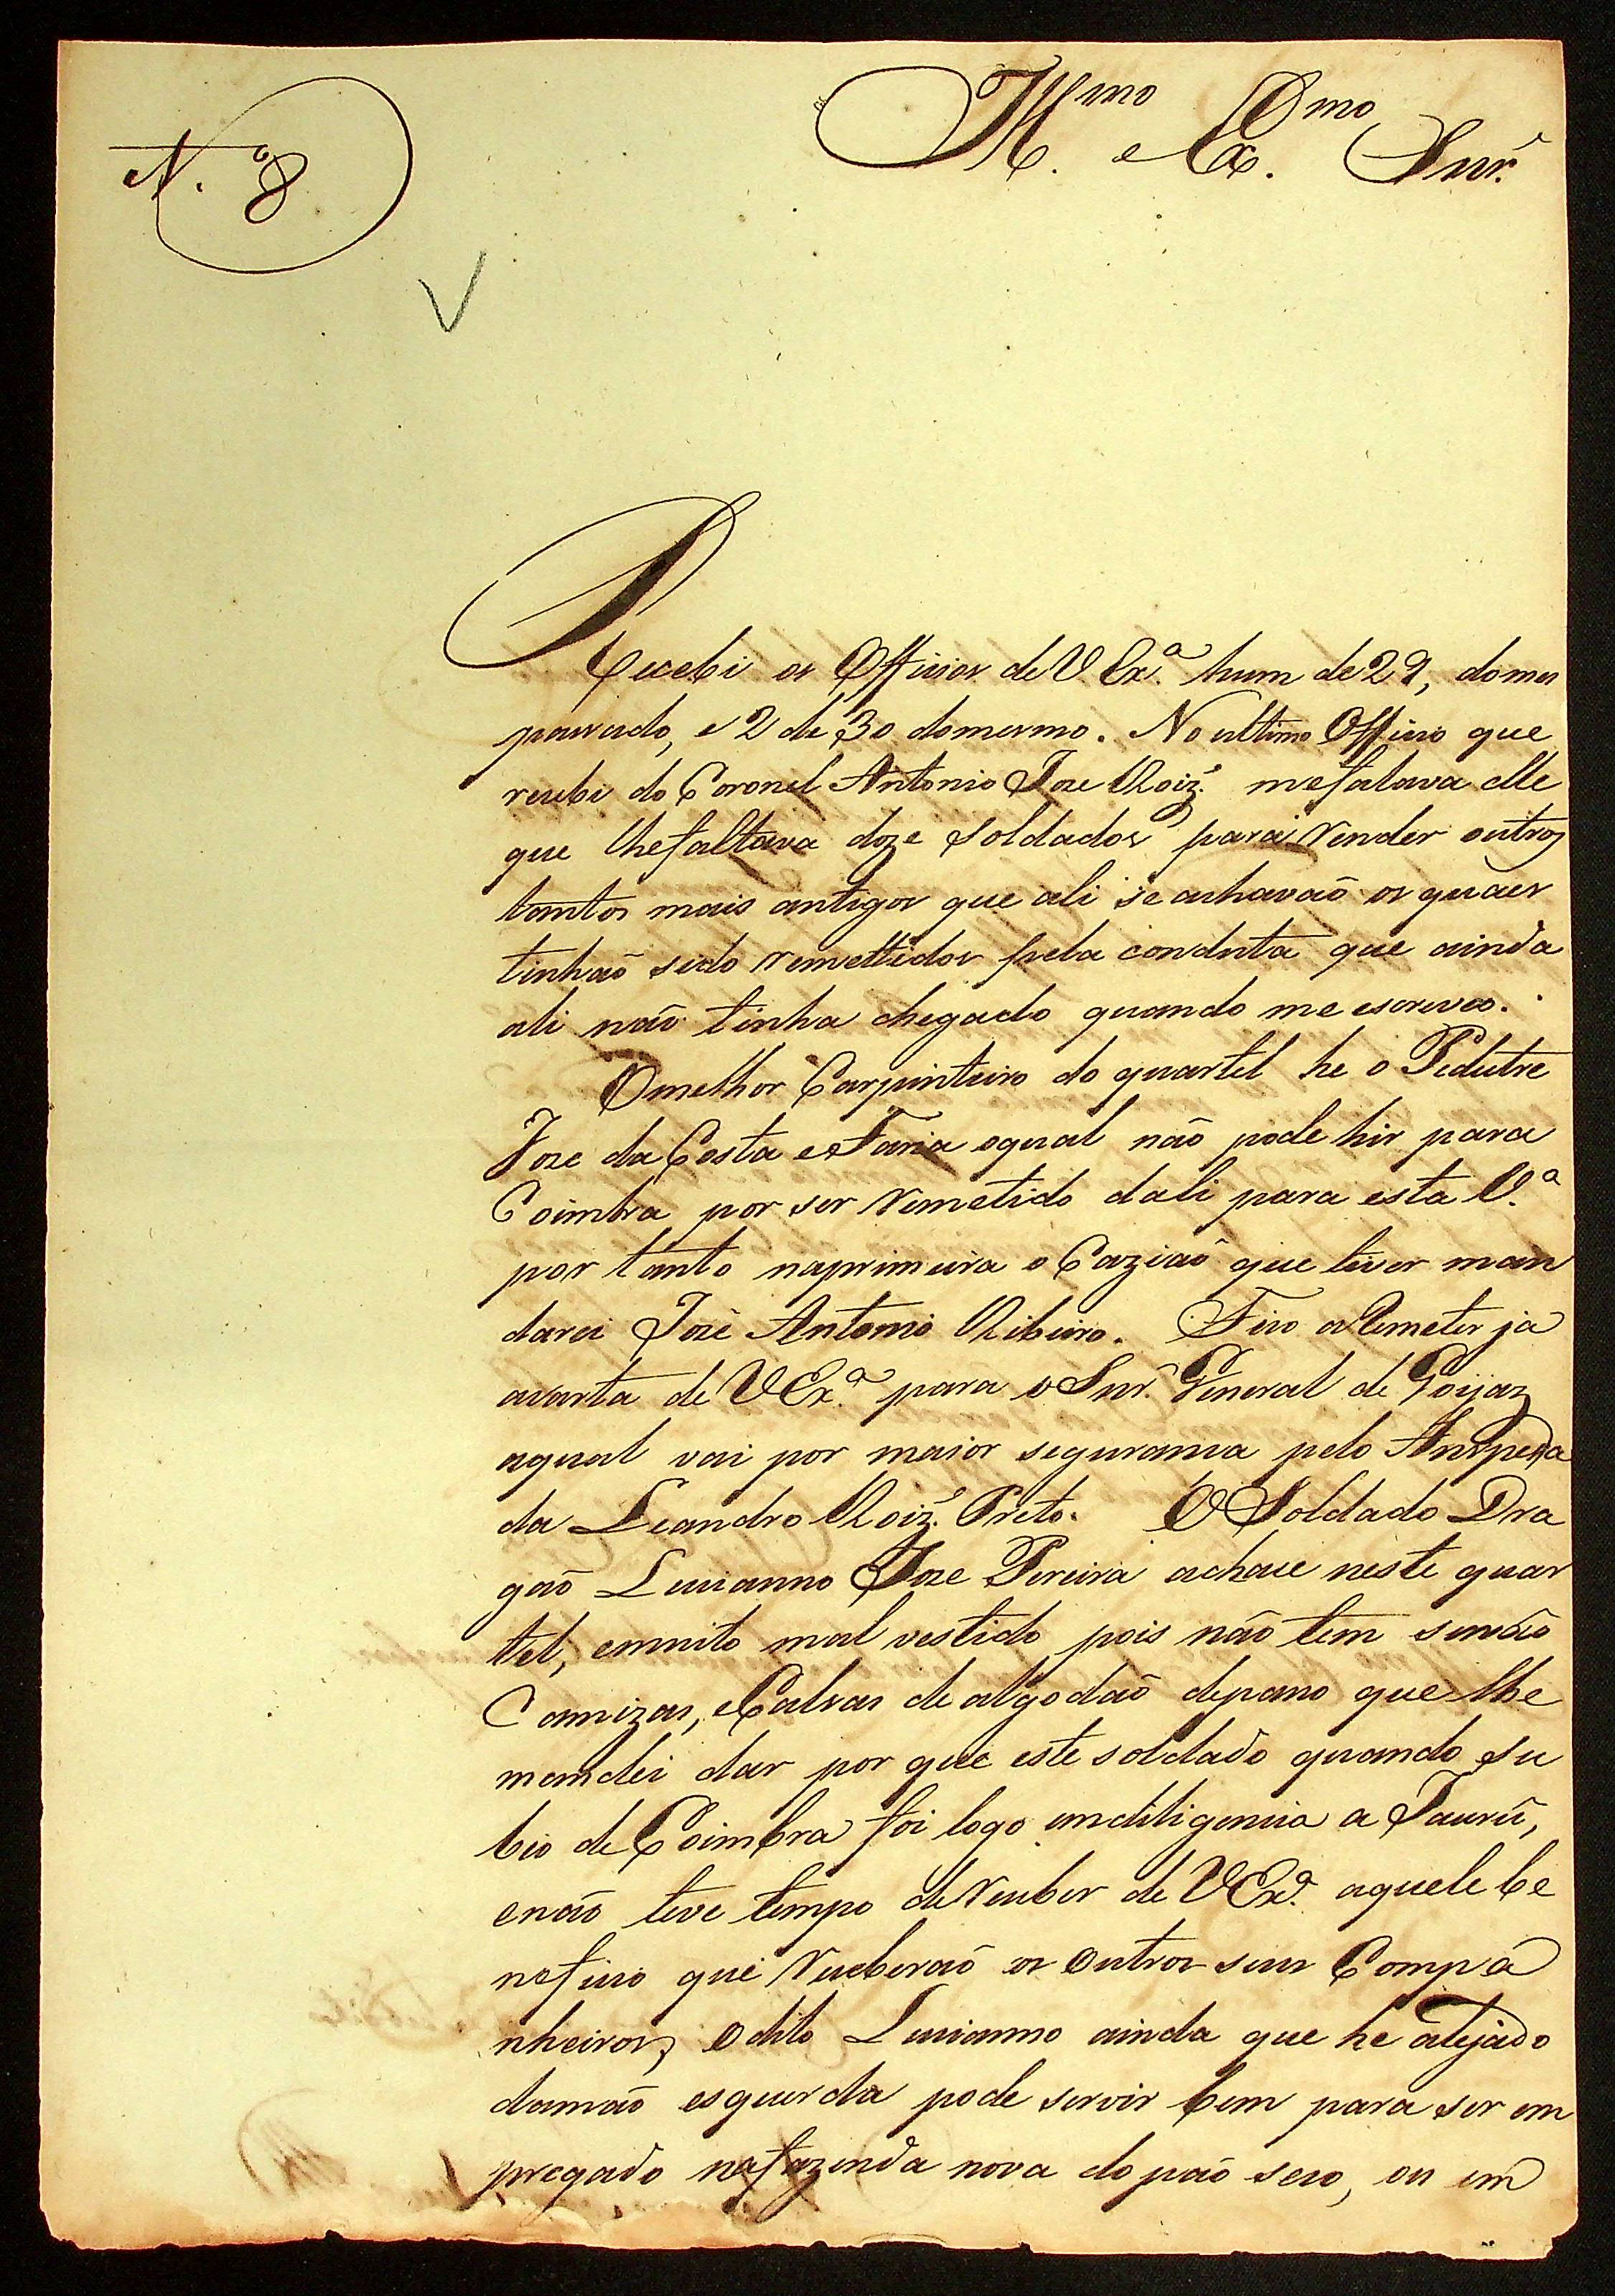 N.º 8
Ill.mo e Ex.mo Snr.
Recebi os Officios de V Ex.ª hum de 29, do mes
passado, e 2 de 30 do mesmo. No ultimo Officio que
recebi do Coronel Antonio Joze Roiz.' me falava elle
que lhe faltava doze soldados para render outros
tantos mais antigos que ali se achavaõ os quaes
tinhaõ sido remettidos pela conduta que ainda
ali naõ tinha chegado quando me escreveo.
O melhor Carpinteiro do quartel he o Pedestre
Joze da Costa e Faria o qual naõ pode hir para
Coimbra por ser remetido dali para esta V.ª
por tanto na primeira o Caziaõ que tiver man
darei Joze Antonio Ribeiro. Fico a Remeter já
a carta de V Ex.ª para o Snr. General de Goijaz
a qual vai por maior seguransa pelo Anspesa
da Leandro Roiz.' Preto. O Soldado Dra
gaõ Lucianno Joze Pereira achase neste quar
tel, e muito mal vestido pois naõ tem senaõ
Camizas, e Calsas de algodaõ de pano que lhe
mandei dar por que este soldado quando su
bio de Coimbra foi logo em diligencia a Jaurú,
e naõ teve tempo de receber de V Ex.ª aquele be
neficio que receberaõ os outros seus Compa
nheiros, o dito Lucianno ainda que he alejado
da maõ esquerda pode servir bem para ser em
pregado na fazenda nova do páo seco, ou em